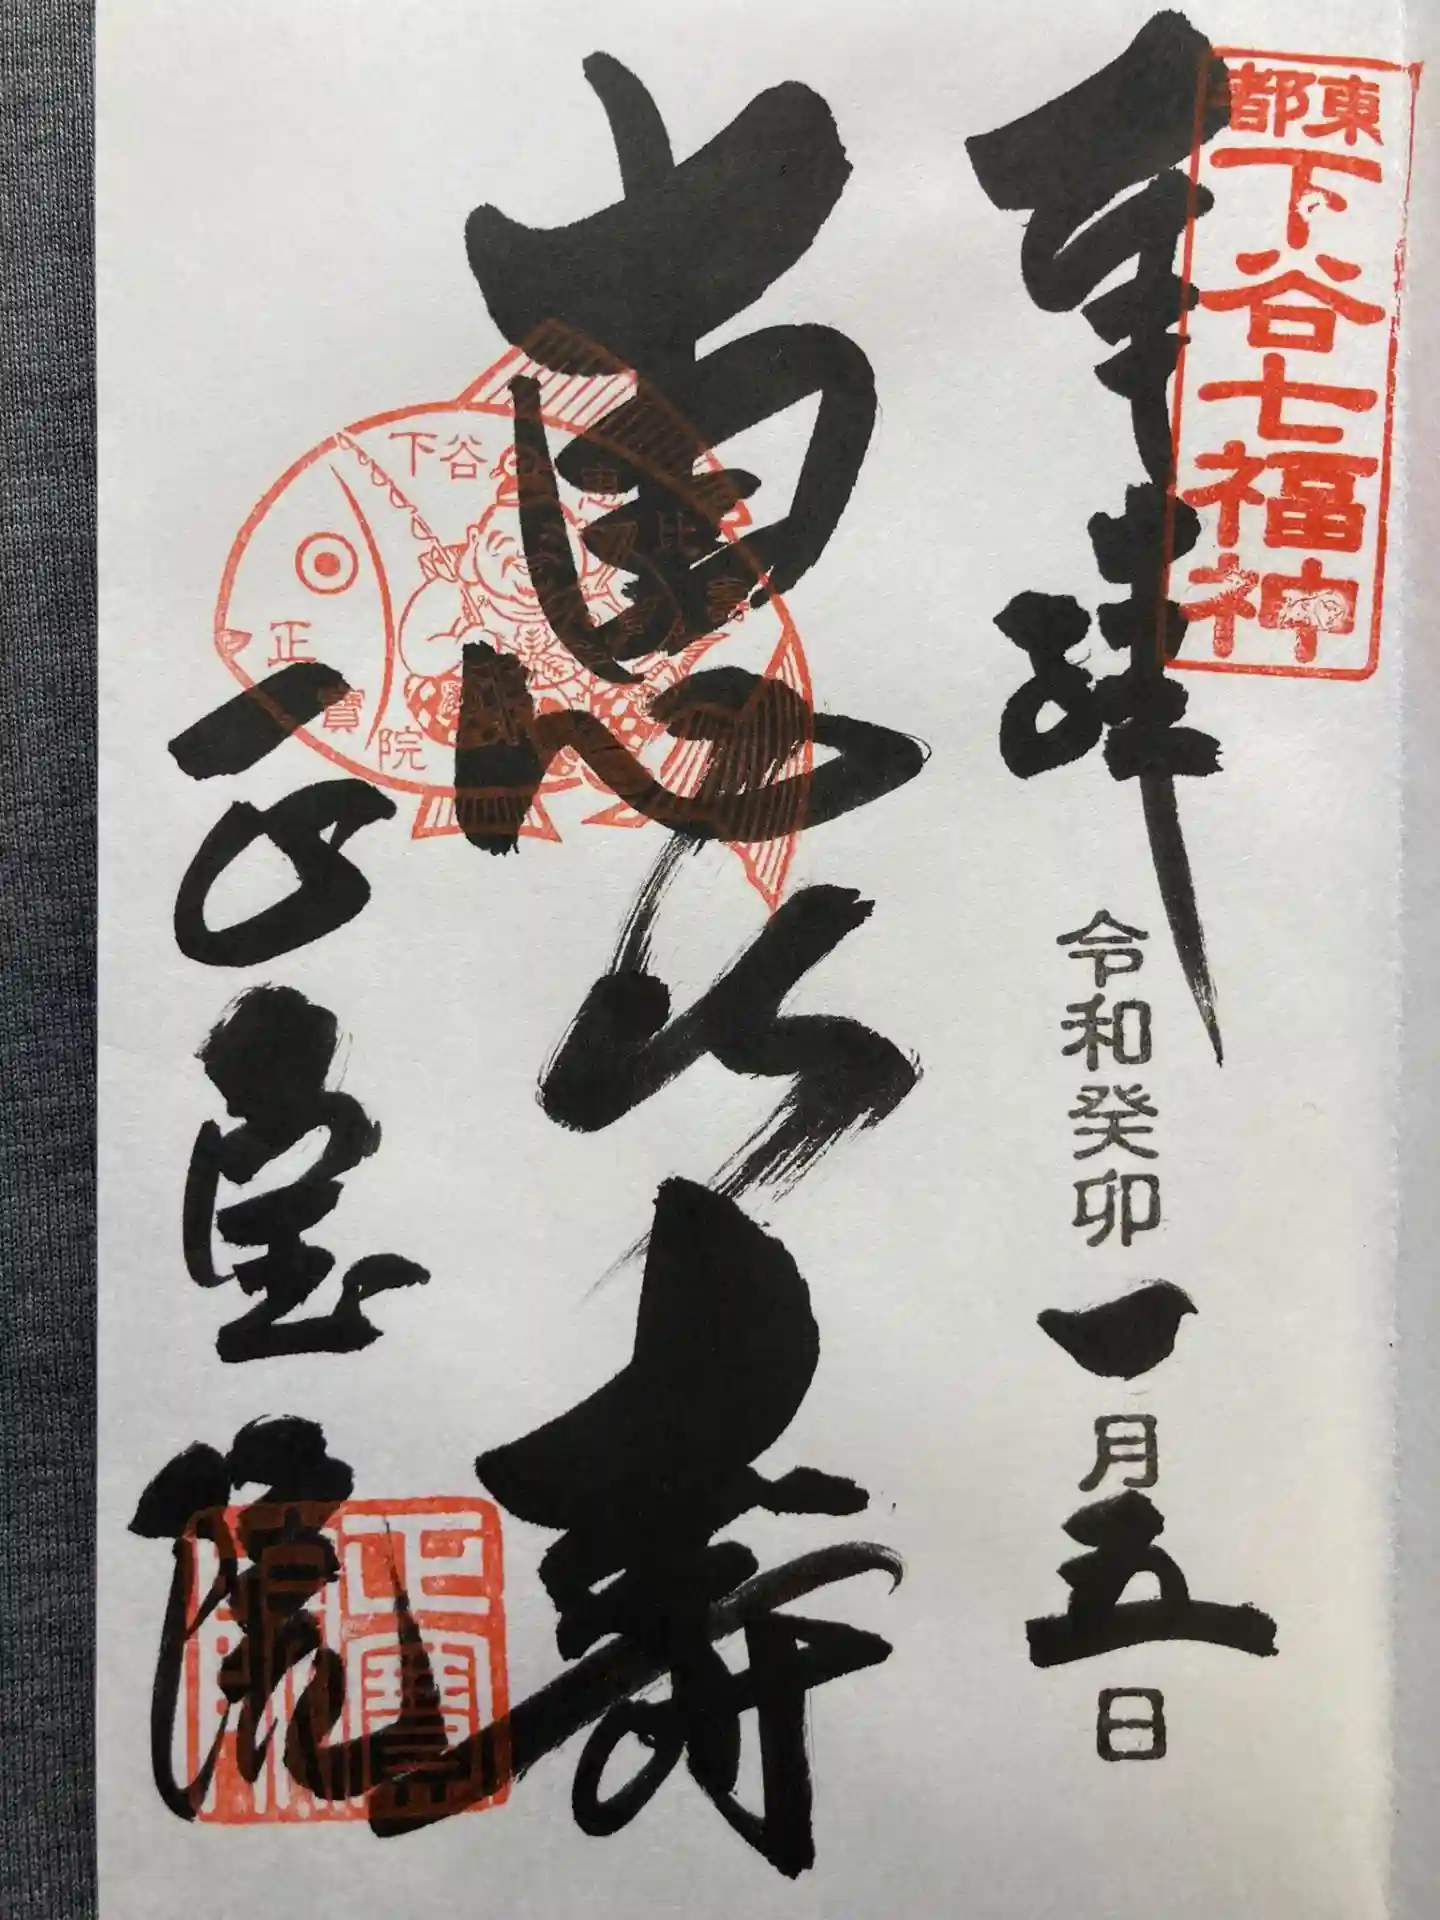 東都
下谷七福神
奉拝
令和癸卯一月五日
恵比寿
下谷
恵比寿
正寶院
正宝院
正寶院